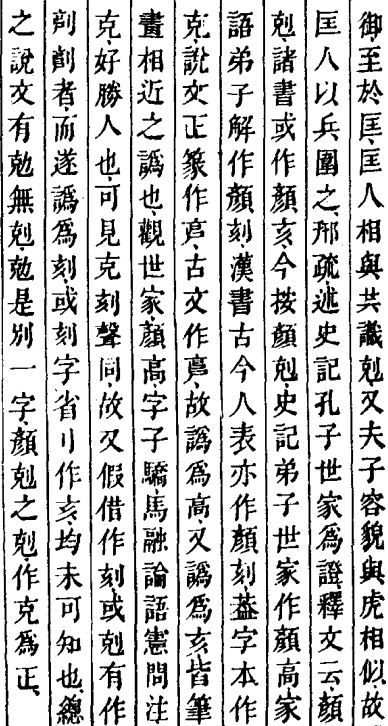 御至於匡匡人相與共識剋又夫子容貌與虎相似故
匡人以兵圍之邢疏述史記孔子世家爲證釋文云顏
剋諸書或作顏亥今按顏剋史記弟子世家作顏高家
語弟子解作顏刻漢書古今人表亦作顏刻葢字本作
克說文正篆作𠅏古文作𠅏故譌爲高又譌爲亥皆筆
畫相近之譌也觀世家顏高字子驕馬融論語憲問注
克好勝人也可見克刻聲同故又假借作刻或剋有作
者而遂譌爲刻或刻字省刂作亥均未可知也總
之說文有勊無剋勊是別一字顏剋之剋作克爲正